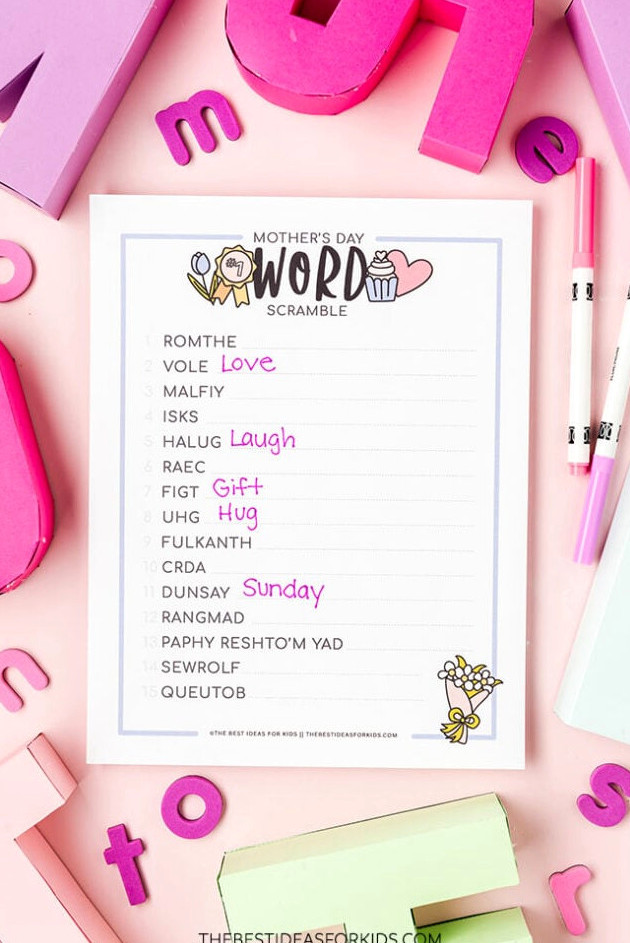 m
e
MOTHER'S DAY
#1
WORD
SCRAMBLE
1 ROMTHE
2 VOLE Love
3 MALFIY
4 ISKS
5 HALUG Laugh
6 RAEC
7 FIGT Gift
8 UHG Hug
9 FULKANTH
10 CRDA
11 DUNSAY Sunday
12 RANGMAD
13 PAPHY RESHTO'M YAD
14 SEWROLF
15 QUEUTOB
©THE BEST IDEAS FOR KIDS || THEBESTIDEASFORKIDS.COM
n
o
t
s
r
THEBESTIDEASFORKIDS.COM